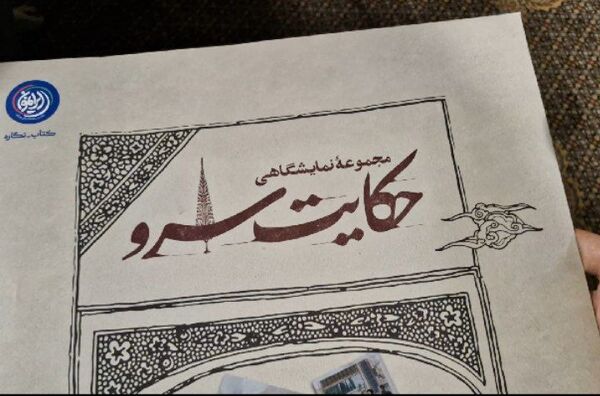 کتاب-نگاره
مجموعهٔ نمایشگاهی
حکایت سرو